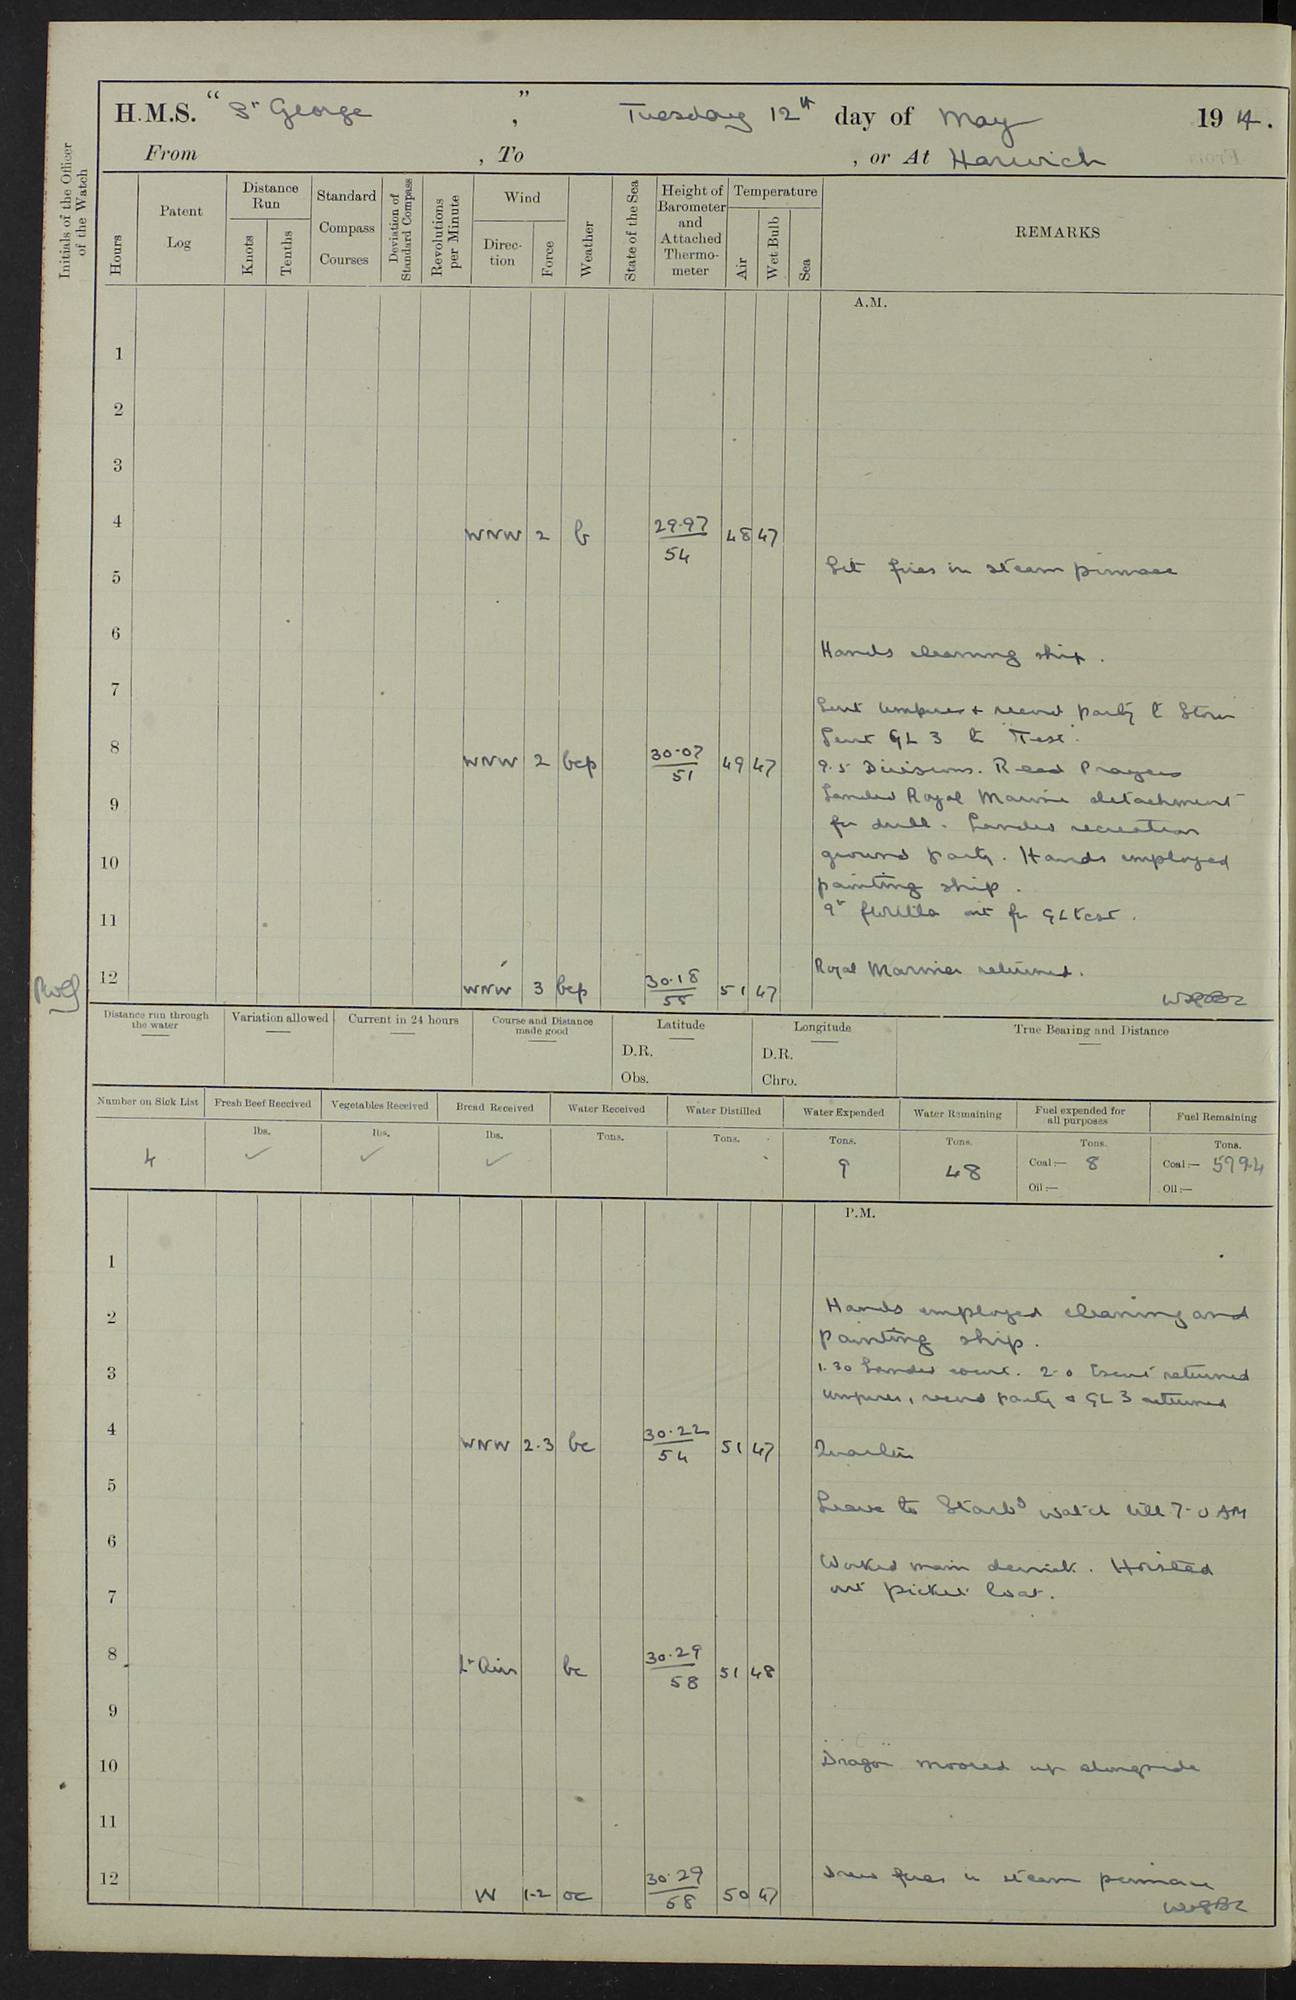 H.M.S. "St George", Tuesday 12th day of May 1914.
From , To , or At Harwich
Initials of the Officer of the Watch
Hours
Patent Log
Distance Run
Knots
Tenths
Standard Compass Courses
Deviation of Standard Compass
Revolutions per Minute
Wind
Direction
Force
Weather
State of the Sea
Height of Barometer and Attached Thermometer
Temperature
Air
Wet Bulb
Sea
REMARKS
A.M.
1
2
3
4 WNW 2 b 29.97 54 48 47
Lit fires in steam pinnace
5
6
Hands cleaning ship.
7
Sent umpires & record party to Stour
Sent GL 3 to "Test".
8 WNW 2 bcp 30.07 51 49 47
9.5 Divisions. Read Prayers
Landed Royal Marine detachment
9
for drill. Landed recreation
ground party. Hands employed
10
painting ship.
9th flotilla out for GL test.
11
Royal Marines returned.
12 WNW 3 bcp 30.18 55 51 47
Distance run through the water
Variation allowed
Current in 24 hours
Course and Distance made good
Latitude
D.R.
Obs.
Longitude
D.R.
Chro.
True Bearing and Distance
Number on Sick List
Fresh Beef Received
Vegetables Received
Bread Received
Water Received
Water Distilled
Water Expended
Water Remaining
Fuel expended for all purposes
Fuel Remaining
lbs. lbs. lbs. Tons. Tons. Tons. Tons. Tons. Tons.
4 ✓ ✓ ✓ 9 48 Coal:— 8 Coal:— 599.4
Oil:— Oil:—
P.M.
1
2
Hands employed cleaning and
painting ship.
3
1.30 Landed escort. 2.0 Escort returned
umpires, record party & GL 3 returned
4 WNW 2.3 bc 30.22 54 51 47
Quarters
5
Leave to Starbd watch till 7.0 AM
6
Worked main derrick. Hoisted
out picket boat.
7
8 Lt Airs bc 30.29 58 51 48
9
10
Dragon moored up alongside
11
12 W 1-2 oc 30.29 58 50 47
Drew fires in steam pinnace